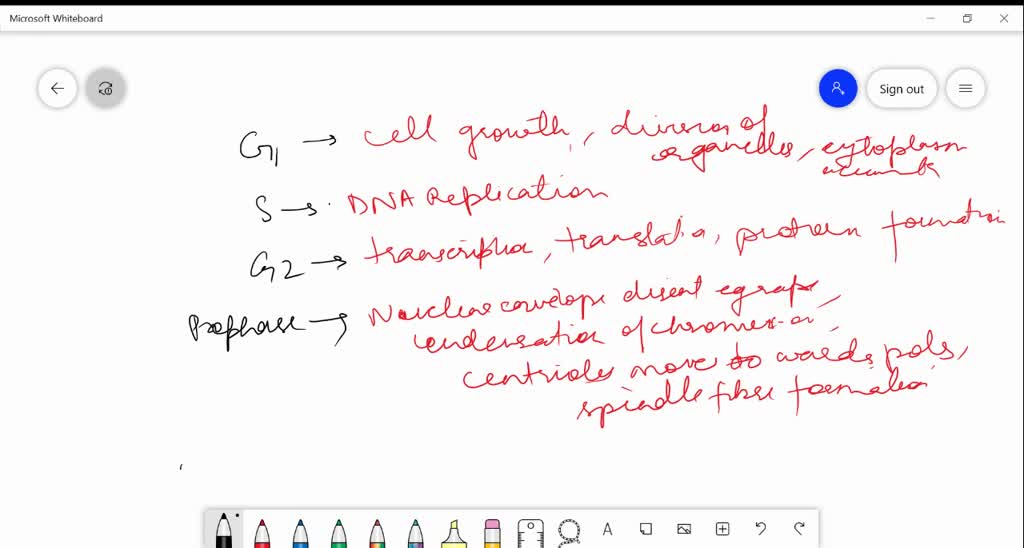 Microsoft Whiteboard
Sign out
G1 → cell growth, division of
organelles, cytoplasm
S → DNA Replication
G2 → transcription, translatio, protein formation
Prophase → Nuclear envelope disent egrape,
condensation of chromosom,
centrioles move to wards pols,
spindle fibre formation
A